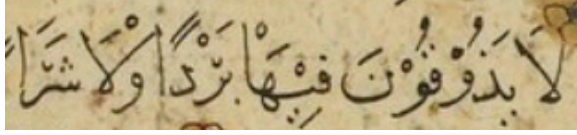 لَا يَذُوْقُوْنَ فِيْهَا بَرْدًا وَلَا شَرَا